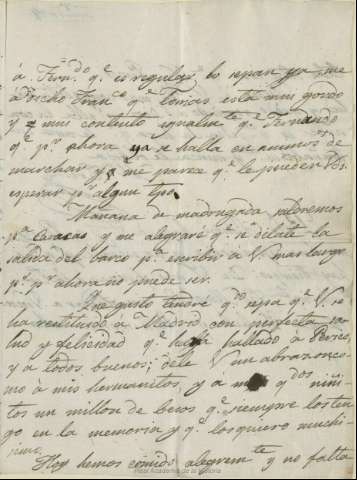 á Fern.do q.e es regular lo sepan ya, me
Pancho Fran.co q.e Tomas está mui gordo
y mui contento igualm.te q.e Fernando
q.e p.r ahora ya se halla en animos de
marchar y me parece q.e le pueden Vs.
esperar p.r algun tpo.
Mañana de madrugada saldremos
p.a Caracas y me alegraré q.e se dilate la
salida del barco p.a escribir a V. mas largo
p.s p.r ahora no puede ser.
Que gusto tendré q.do sepa q.e V. se
ha restituido á Madrid con perfecta sa-
lud y felicidad q.e haya hallado á Perico,
y a todos buenos; déle V un abrazo en co-
mo á mis hermanitos, y a mis q.dos niñi-
tos un millon de besos q.e siempre los ten-
go en la memoria y q.e los quiero muchi-
simo.
Hoy hemos comido alegrem.te y no falta
Real Academia de la Historia